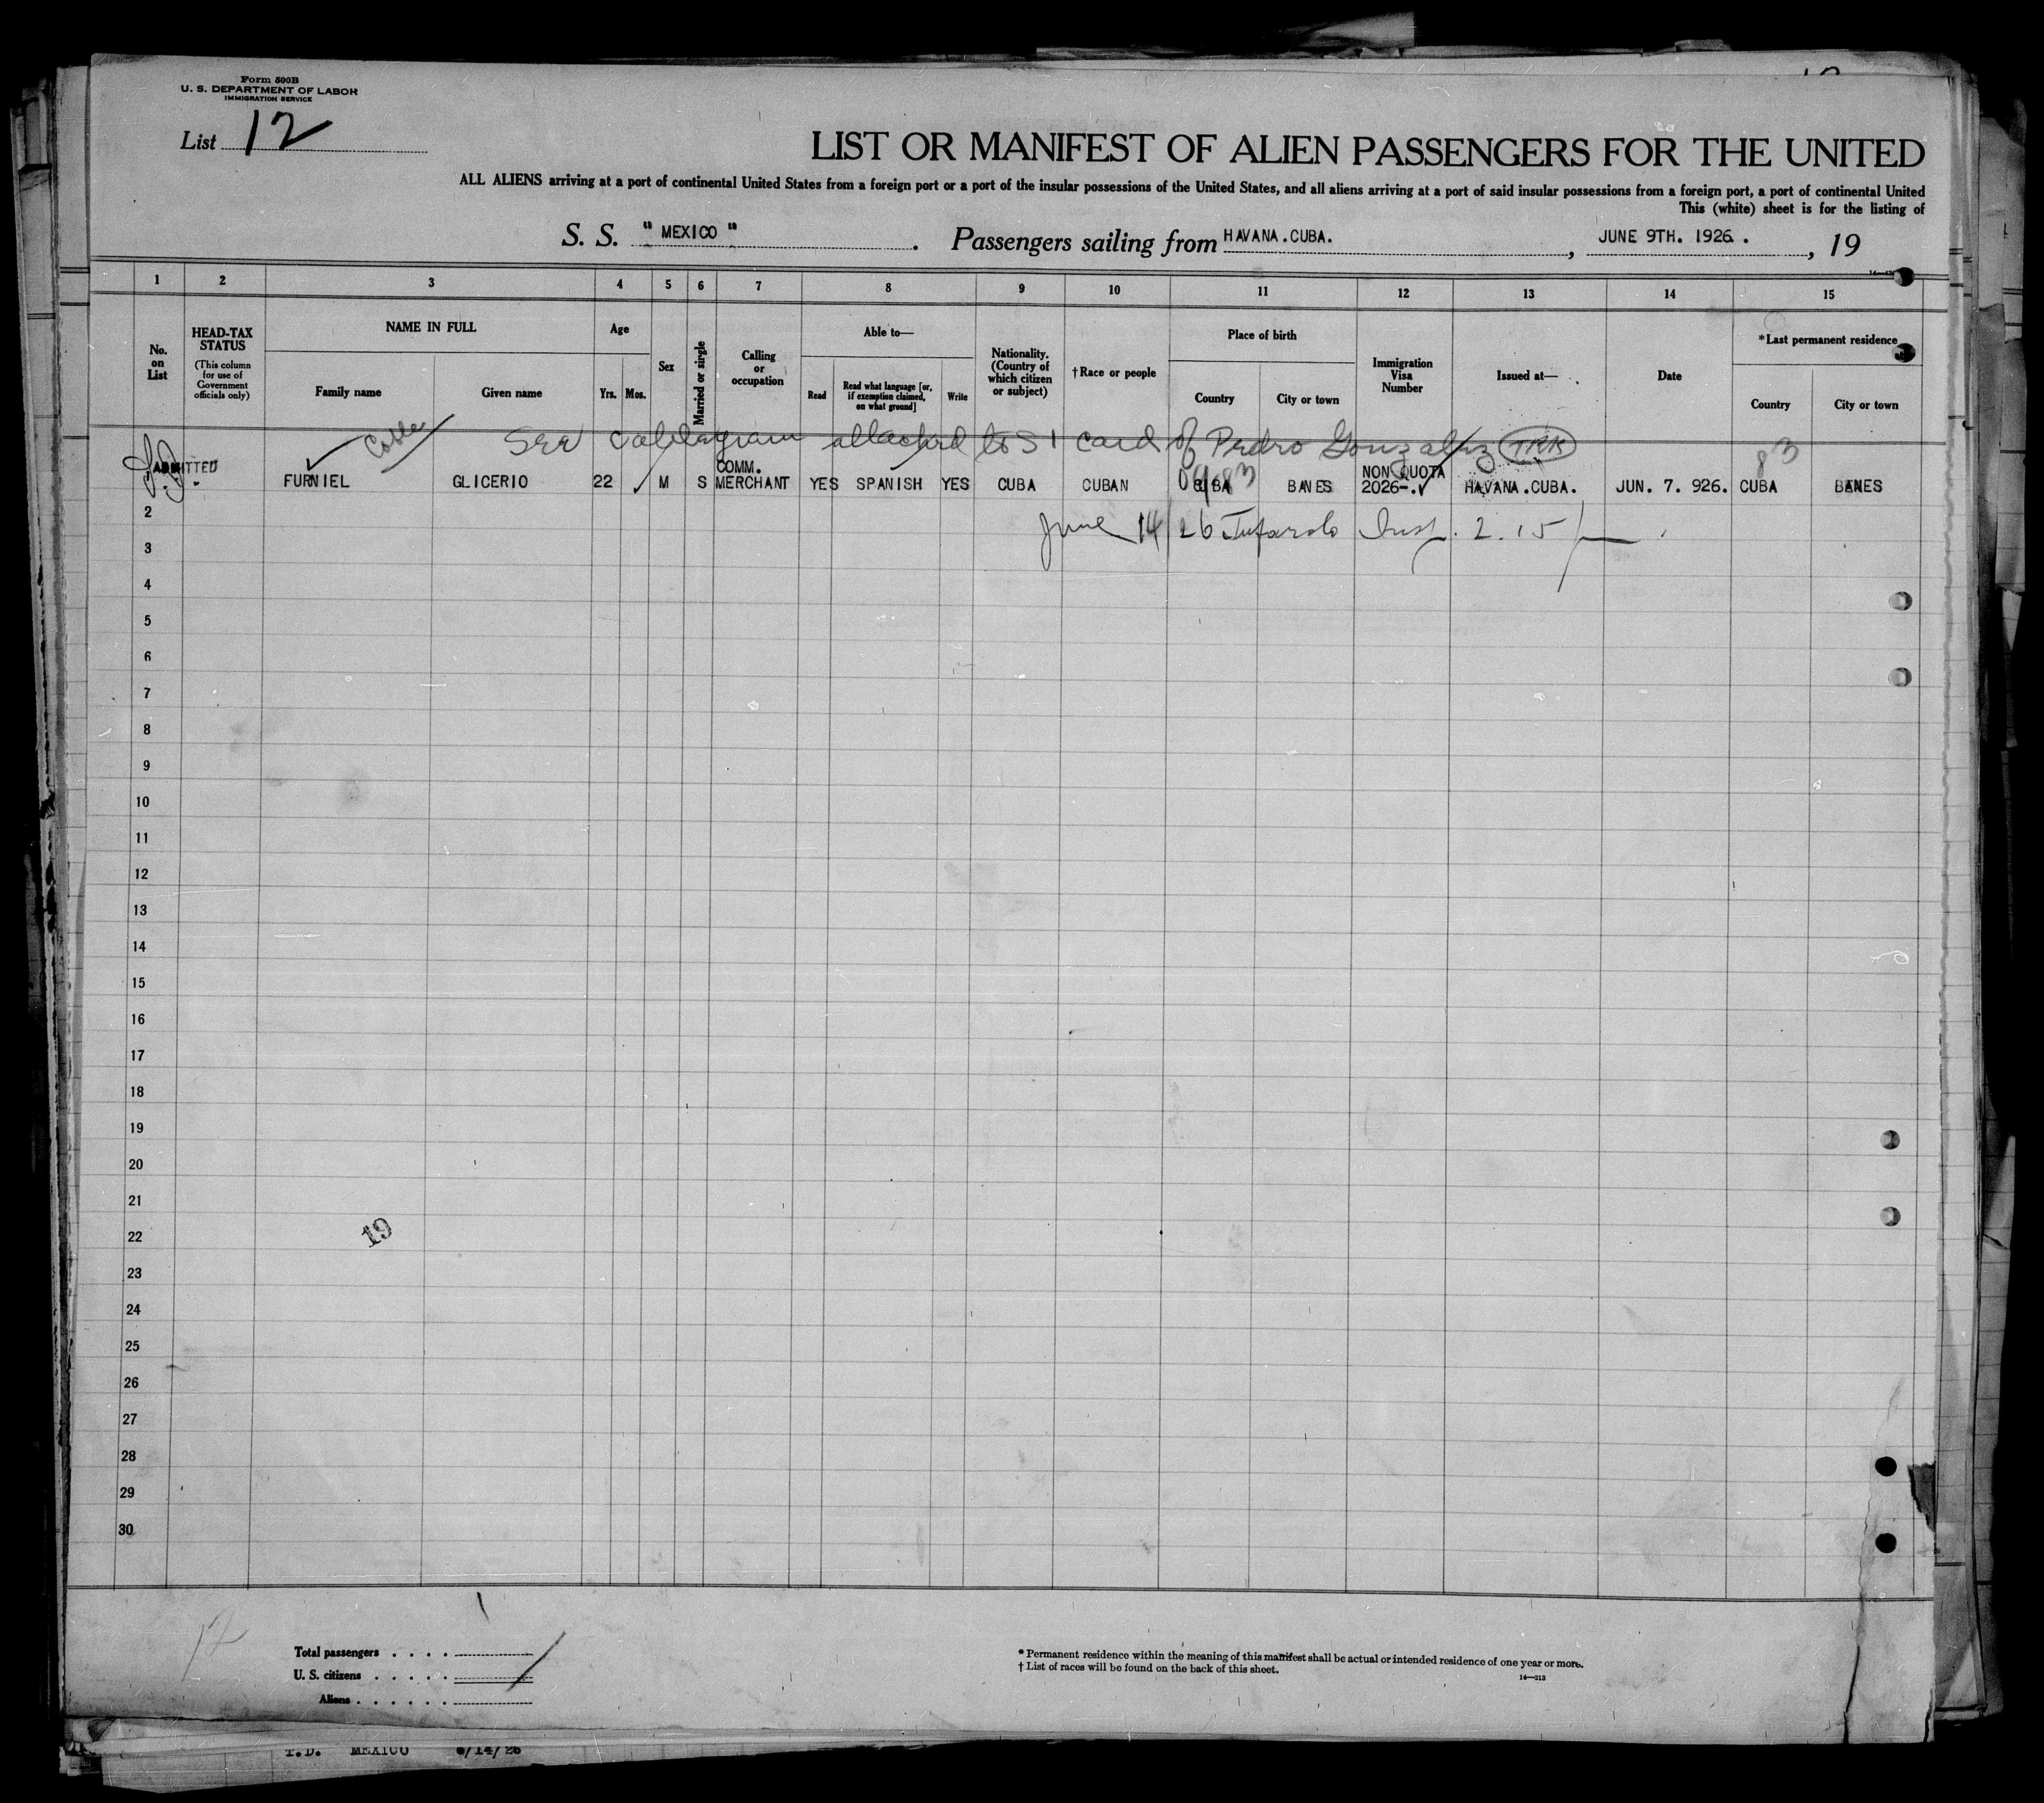 Form 500B
U. S. DEPARTMENT OF LABOR
IMMIGRATION SERVICE
List 12
LIST OR MANIFEST OF ALIEN PASSENGERS FOR THE UNITED
ALL ALIENS arriving at a port of continental United States from a foreign port or a port of the insular possessions of the United States, and all aliens arriving at a port of said insular possessions from a foreign port, a port of continental United
This (white) sheet is for the listing of
S. S. "MEXICO". Passengers sailing from HAVANA.CUBA., JUNE 9TH. 1926., 19
1 2 3 4 5 6 7 8 9 10 11 12 13 14 15
No. on List
HEAD-TAX STATUS
(This column for use of Government officials only)
NAME IN FULL
Family name Given name
Age
Yrs. Mos.
Sex
Married or single
Calling or occupation
Able to—
Read Read what language [or, if exemption claimed, on what ground] Write
Nationality. (Country of which citizen or subject)
†Race or people
Place of birth
Country City or town
Immigration Visa Number
Issued at—
Date
*Last permanent residence
Country City or town
Cable See cablegram attached to S I card of Pedro Gonzalez TRK
83
ADMITTED FURNIEL GLICERIO 22 M S COMM. MERCHANT YES SPANISH YES CUBA CUBAN CUBA BANES NON QUOTA 2026-. HAVANA.CUBA. JUN. 7. 926. CUBA BANES
2 June 14 26 Insp. 2.15
3
4
5
6
7
8
9
10
11
12
13
14
15
16
17
18
19
20
21
22
19
23
24
25
26
27
28
29
30
12
Total passengers . . . .
U. S. citizens . . . . .
Aliens . . . . . .
* Permanent residence within the meaning of this manifest shall be actual or intended residence of one year or more.
† List of races will be found on the back of this sheet.
14—213
T.D. MEXICO 6/14/26